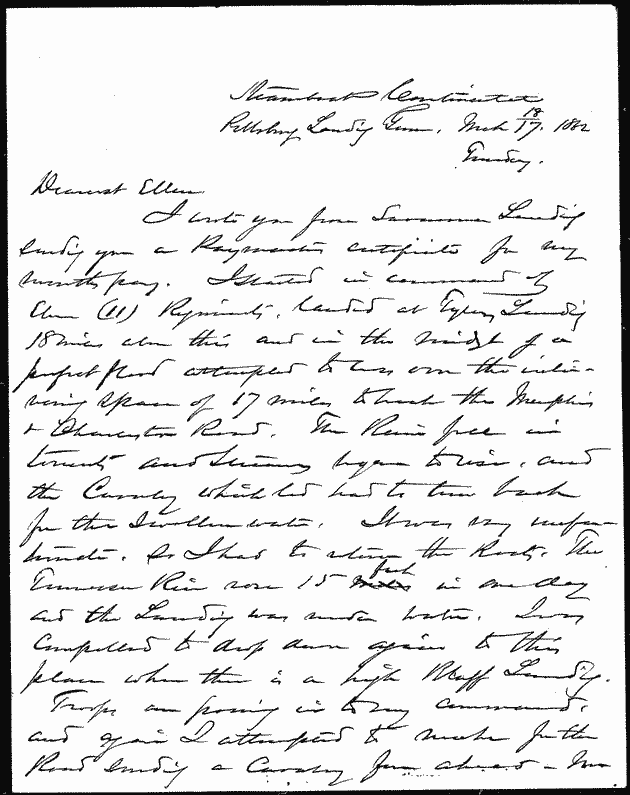 Steamboat Continental
Pittsburg Landing Tenn. March 18/17. 1862
Tuesday.
Dearest Ellen
I wrote you from Savannah Landing
sending you a Paymasters certificate for my
months pay. I started in command of
Eleven (11) Regiments, landed at Tylers Landing
18 miles above this and in the midst of a
perfect flood attempted to cross over the interve-
ning space of 17 miles to break the Memphis
& Charleston Road. The Rain fell in
torrents and streams began to rise, and
the Cavalry which led had to turn back
for the swollen water. It was very unfor-
tunate. So I had to return the Boats. The
Tennessee River rose 15 feet in one day
and the Landing was under water. I was
compelled to drop down again to this
place where there is a high Bluff Landing.
Troops are pouring in to my command.
and again I attempted to make for the
Road sending a Cavalry force ahead –